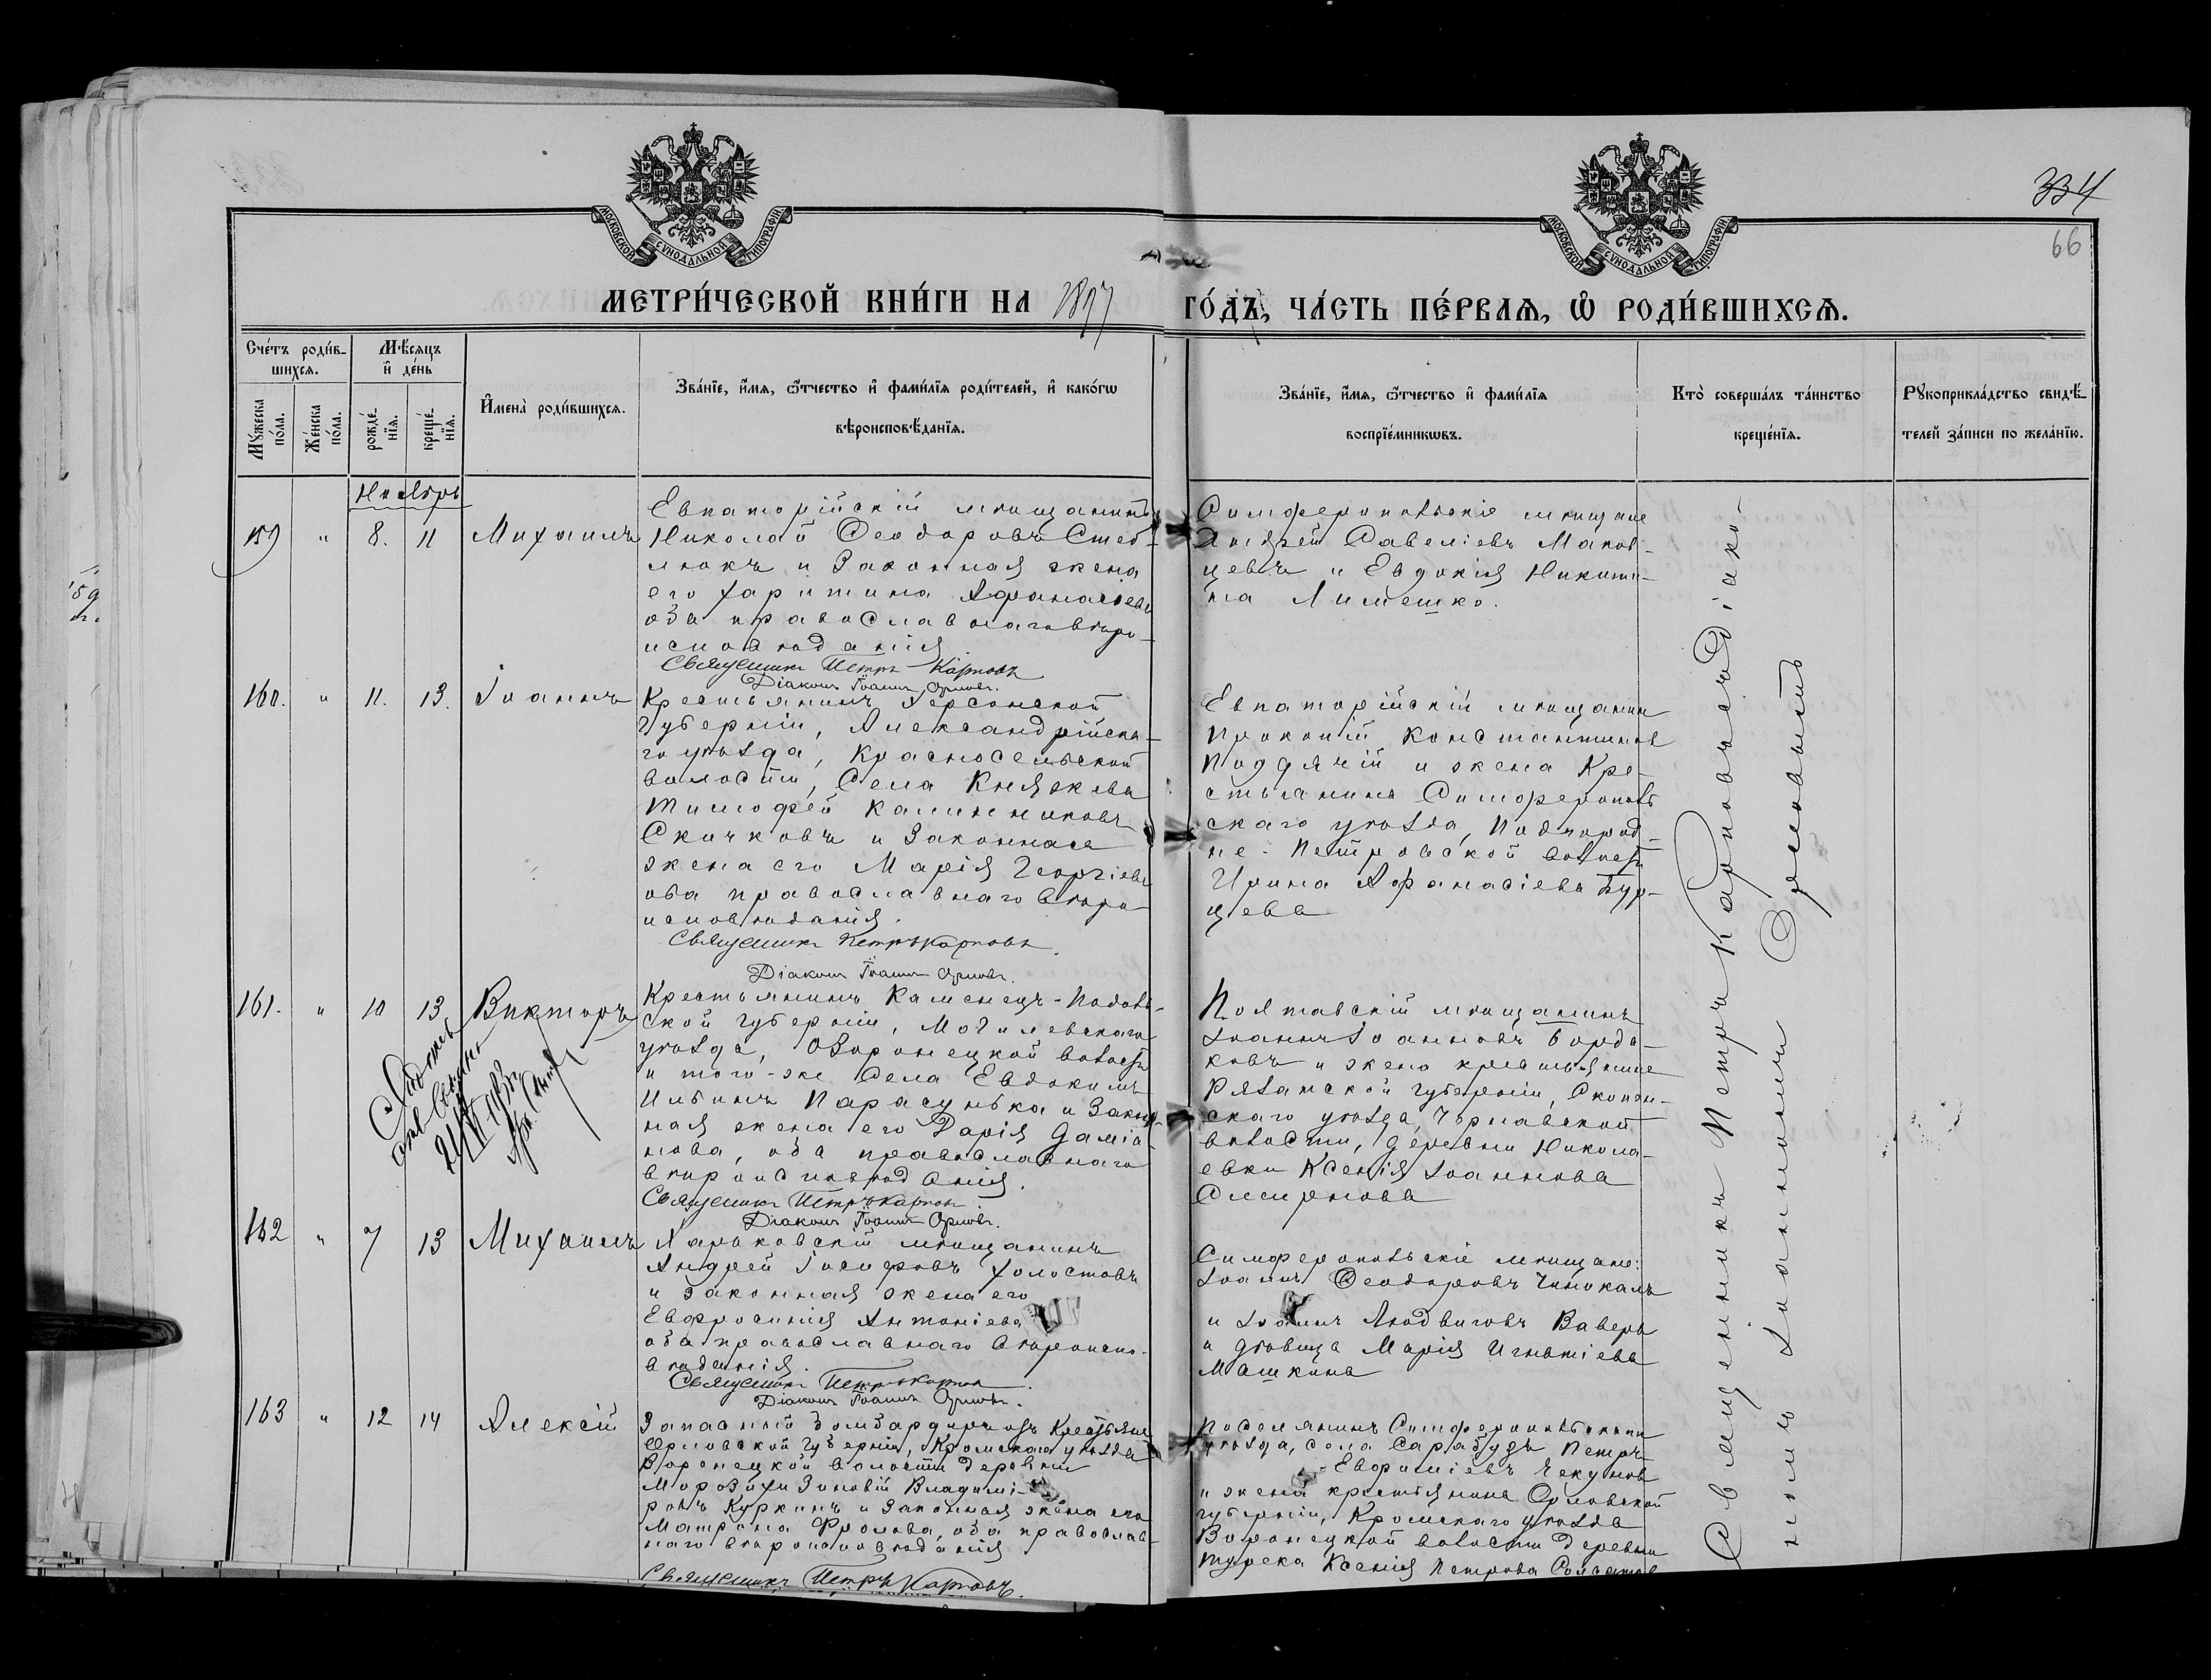 МОСКОВСКОЙ СѴНОДАЛЬНОЙ ТИПОГРАФІИ
МОСКОВСКОЙ СѴНОДАЛЬНОЙ ТИПОГРАФІИ
334
66
МЕТРИ́ЧЕСКОЙ КНИ́ГИ НА 1897 ГО́ДЪ, ЧА́СТЬ ПЕ́РВАѦ, Ѽ РОДИ́ВШИХСѦ.
Счéтъ роди́в-
шихсѧ.
Мѣ́сѧцъ
и҆ де́нь
Мꙋ́жеска по́ла.
Же́нска по́ла.
рожде́-
нїѧ.
креще́-
нїѧ.
И҆мена̀ роди́вшихсѧ.
Зва́нїе, и҆́мѧ, ѻ҆́тчество и҆ фами́лїѧ роди́телей, и҆ како́гѡ
вѣроисповѣ́данїѧ.
Зва́нїе, и҆́мѧ, ѻ҆́тчество и҆ фами́лїѧ
воспрїе́мникѡвъ.
Кто̀ соверша́лъ та́инство
креще́нїѧ.
Рꙋкоприкла́дство свидѣ́-
телей за́писи по жела́нїю.
Ноябрь
159 " 8. 11 Михаилъ
Евпаторійскій мѣщанинъ
Николай Ѳеодоровъ Стеб-
люкъ и законная жена
его Харитина Афанасьева
оба православнаго вѣро-
исповѣданія
Священникъ Петръ Карповъ
Діаконъ Іоаннъ Орловъ.
Симферопольскіе мѣщане
Андрей Савеліевъ Маков-
цевъ и Евдокія Никити-
на Лимешко.
160. " 11. 13. Іоаннъ
Крестьянинъ Херсонской
губерніи, Александрійска-
го уѣзда, Красносельской
волости, села Княжева
Тимофей Калинниковъ
Скичковъ и законная
жена его Марія Георгіева
оба православнаго вѣро
исповѣданія.
Священникъ Петръ Карповъ.
Діаконъ Іоаннъ Орловъ.
Евпаторійскій мѣщанин
Прокопій Константинов
Поддячій и жена кре-
стьянина Симферополь
скаго уѣзда, Подгород-
не-Петровской волости
Ирина Афанасіева Бур-
цева
161. " 10 13 Викторъ
Крестьянинъ Каменецъ-Подоль-
ской губерніи, Могилевскаго
уѣзда, Озаронецкой волости
и того-же села Евдокимъ
Ильинъ Парасунька и закон
ная жена его Дарія Даміа
нова, оба православнаго
вѣроисповѣданія.
Священникъ Петръ Карповъ.
Діаконъ Іоаннъ Орловъ.
Полтавскій мѣщанинъ
Іоаннъ Іоанновъ Борда-
ковъ и жена крестьянина
Рязанской губерніи, Скопин-
скаго уѣзда, Чернавской
волости, деревни Никола-
евки Ксенія Іоаннова
Смирнова
162 " 7 13 Михаилъ
Харьковскій мѣщанинъ
Андрей Іосифовъ Холостовъ
и законная жена его
Евфросинія Антоніева
оба православнаго вѣроиспо-
вѣданія.
Священникъ Петръ Карпов.
Діаконъ Іоаннъ Орловъ.
Симферопольскіе мѣщане:
Іоаннъ Ѳеодоровъ Чинокалъ
и Іоаннъ ЛюдвиговъВаверъ
и дѣвица Марія Игнатіева
Машкина
163 " 12 14 Алексій
Запасный бомбардиръ изъ крестьянъ
Орловской губерніи, Кромскаго уѣзда
Воронецкой волости деревни
Морозихи Зиновій Владими-
ровъ Куркинъ и законная жена его
Матрона Фролова, оба православ-
наго вѣроисповѣданія
Священникъ Петръ Карповъ.
Поселянинъ Симферопольскаго
уѣзда, села Сарабузъ Петръ
Евфиміевъ Чекунов
и жена крестьянина Орловской
губерніи, Кромскаго уѣзда
Воронецкой волости деревни
Ксенія Петрова
Священникъ Петръ Карповъ съ Діако-
номъ Іоанномъ Орловымъ